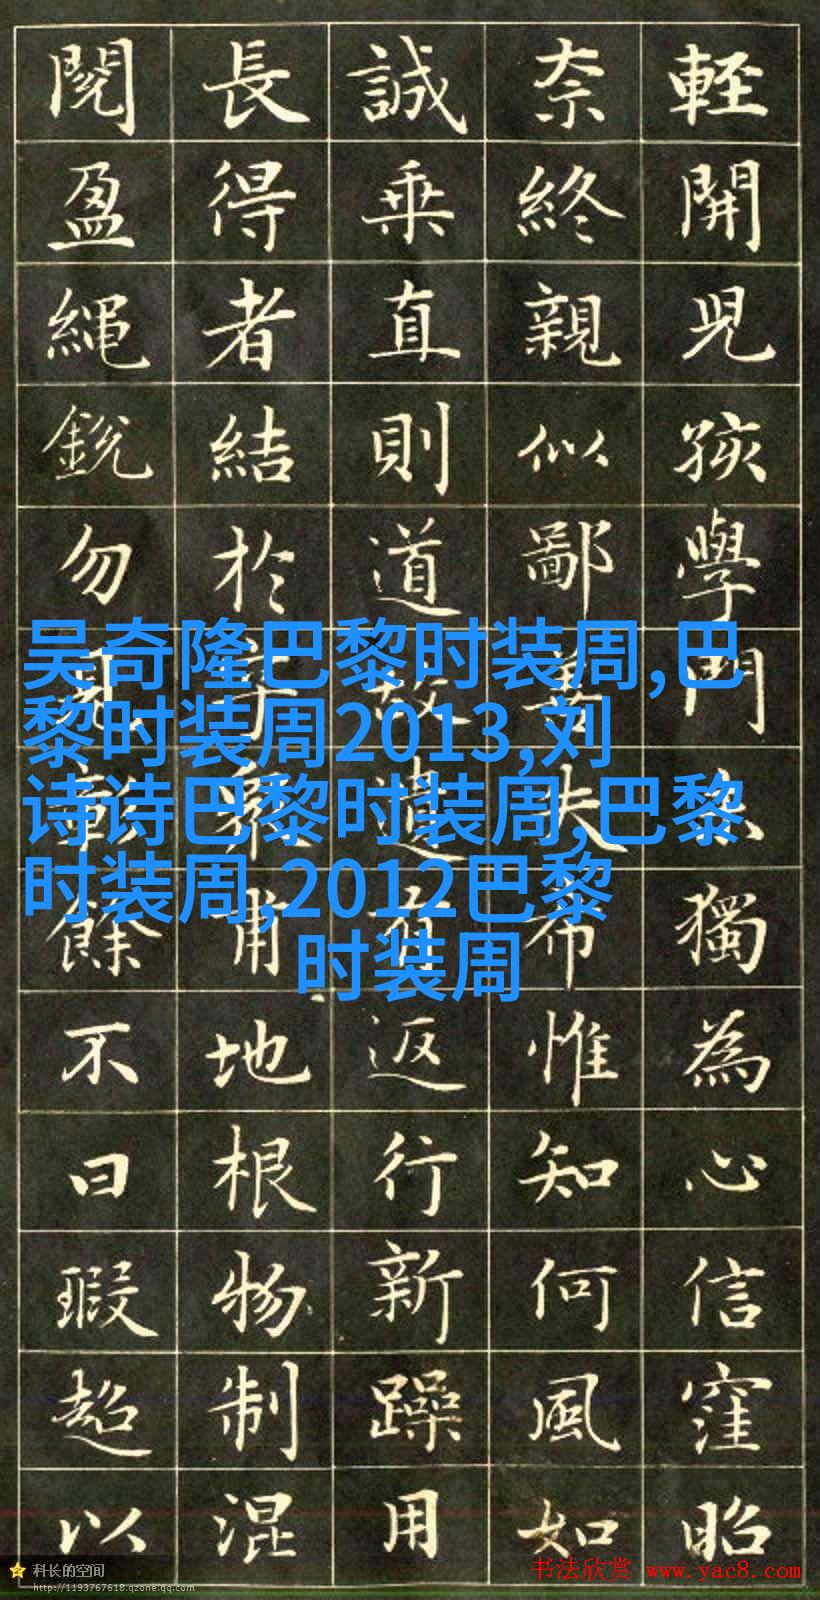 輕開兒孩學門獨為心信窪昭
奈終親似鄙善夫希惟知何風如
誠乘直則道故有返行新躁用
長得者結於甫地根物制混
閱盈繩銳勿餘不曰瑕超以
吴奇隆巴黎时装周,巴
黎时装周2013,刘
诗诗巴黎时装周,巴黎
时装周,2012巴黎
时装周
科长的空间
http://1193767618.qzone.qq.com
书法欣赏 www.yac8.com